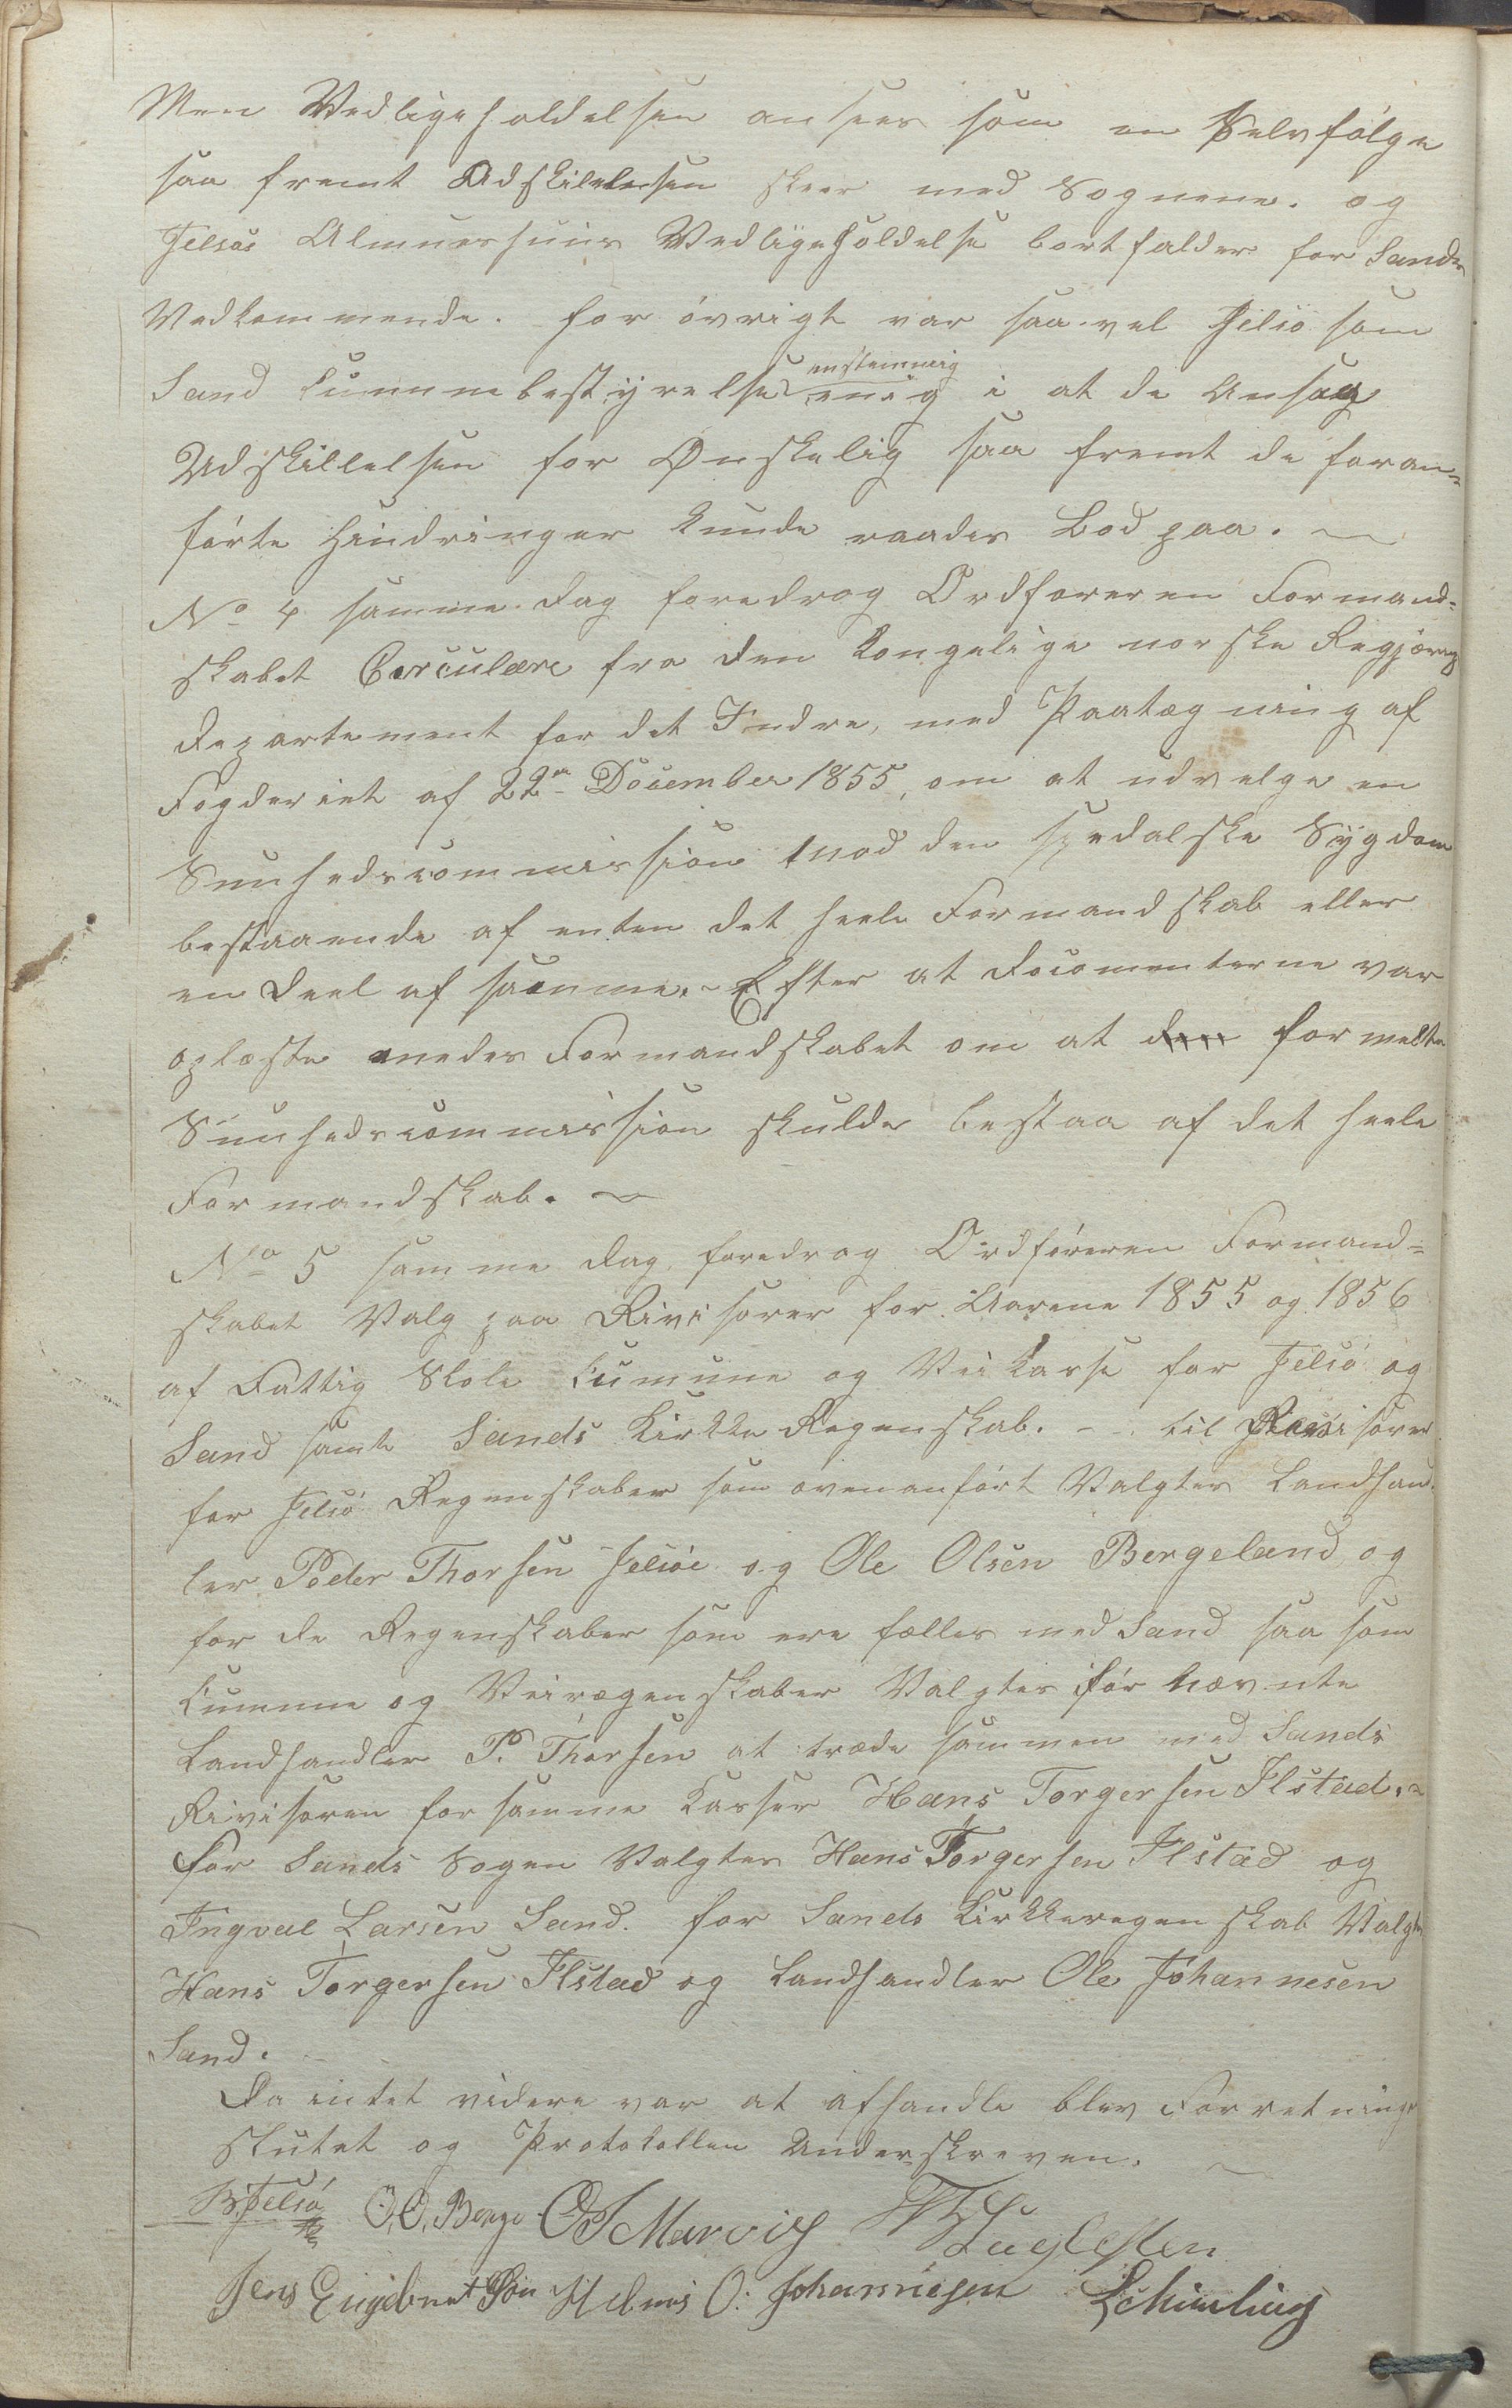 Men Vedligeholdelsen ansees som en Selvfölge
saa fremt Adskillelsen skeer med Sognene. og
Jelsös Almueshuus Vedligeholdelse bortfalder for Sands
Vedkommende. for övrigt var saavel Jelsö som
Sand Cummunebestyrelse enstemmig enig i at de Ansaag
Udskillelsen for Ønskelig saa fremt de foran-
förte Hindringer kunde raades Bod paa. ~
No 4 samme Dag foredrog Ordföreren Formand-
skabet Circulære fra den kongelige norske Regjærings
Departement for det Indre, med Paategning af
Fogderiet af 22de December 1855, om at udvelge en
Sunhedscommission mod den spedalske Sygdom
bestaaende af enten det heele Formandskab eller
en Deel af samme. ~ Efter at Documenterne var
oplæste enedes Formandskabet om at den formelte
Sunhedscommission skulde bestaa af det heele
Formandskab. ~
No 5 samme Dag foredrog Ordföreren Formand-
skabet Valg paa Rivisorer for Aarene 1855 og 1856
af Fattig Skole Cumune og Veikasse for Jelsö og
Sand samt Sands Kirkke Regenskab. - til Revisorer
for Jelsö Regenskaber som ovenanfört Valgtes Landhand-
ler Peder Thorsen Jelsöe og Ole Olsen Bergeland og
for de Regenskaber som ere fælles med Sand saa som
Cummune og Veiregenskaber Valgtes för nævnte
Landhandler P. Thorsen at træde sammen med Sands
Rivisoren for samme Kasser Hans Torgersen Ilstad. ~
for Sands Sogen Valgtes Hans Torgersen Ilstad og
Ingval Larsen Sand. for Sands Kirkkeregenskab Valgtes
Hans Torgersen Ilstad og Landhandler Ole Johannesen
Sand.
Da intet videre var at afhandle blev Forretningen
slutet og Protokollen Underskreven. ~
B. Jelsö O. O. Berge
Jens Engebret Sön Helmis O: Johannesen